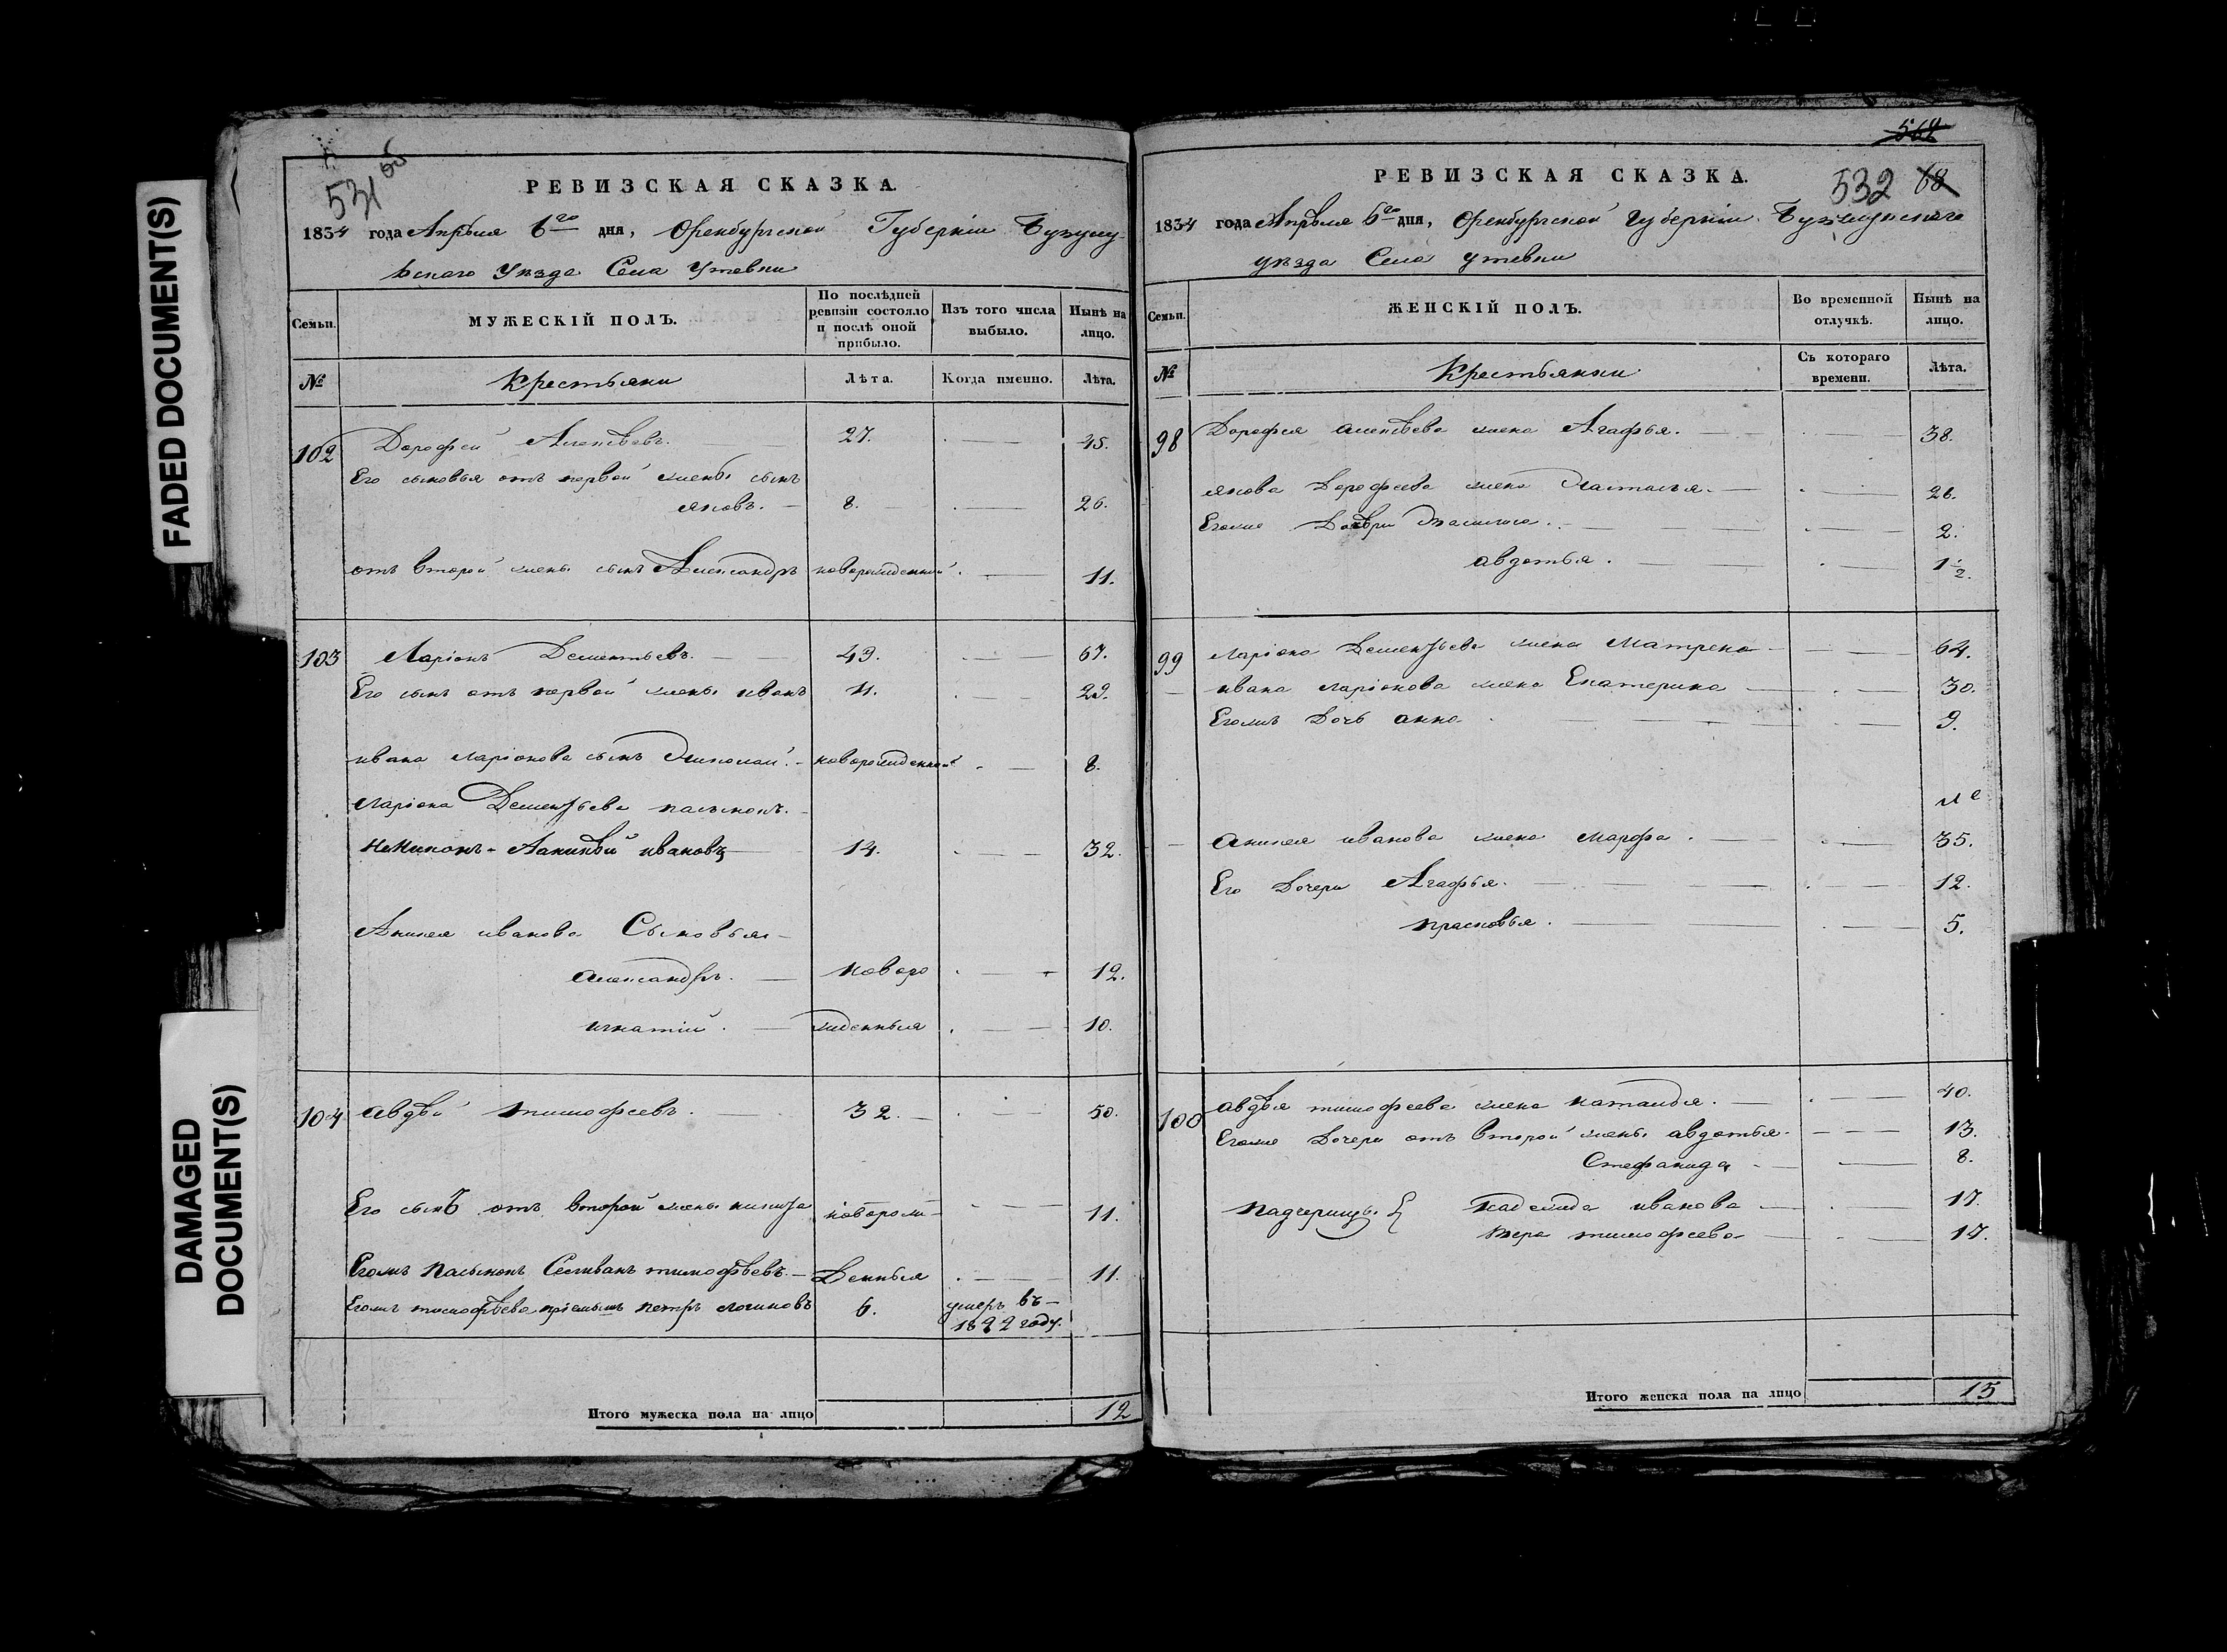 FADED DOCUMENT(S)
DAMAGED
DOCUMENT(S)
531
РЕВИЗСКАЯ СКАЗКА.
1834 года Апрѣля 6го дня, Оренбургской Губерніи Бузулу-
кскаго Уѣзда Села Утевки
Семьи.
МУЖЕСКІЙ ПОЛЪ.
По послѣдней ревизіи состояло и послѣ оной прибыло.
Изъ того числа выбыло.
Нынѣ на лицо.
№
Крестьяни
Лѣта.
Когда именно.
Лѣта.
102 Дорофей Алексѣевъ. 27. 45.
Его сыновья отъ первой жены сынъ
яковъ. 8. 26.
отъ второй жены сынъ Александръ новорожденной 11.
103 Ларіонъ Дементьевъ. 49. 67.
Его сынъ отъ первой жены иванъ 11. 29.
ивана ларіонова сынъ Николай. новорожденной 8.
Ларіона Дементьева пасынокъ.
Аникѣй ивановъ 14. 32.
Аникея иванова Сыновья
Александръ. новоро 12.
игнатій. жденныя 10.
104 авдѣй тимофеевъ. 32. 50.
Его сынъ отъ второй жены никита новорож- 11.
Егожъ пасынокъ Селиванъ тимофѣевъ. денныя 11.
Егожъ тимофѣева пріемышъ петръ логиновъ 6. умеръ въ
1822 году.
Итого мужеска пола на лицо 12
562
532 68
РЕВИЗСКАЯ СКАЗКА.
1834 года Апрѣля 6го дня, Оренбургской Губерніи Бузулукскаго
уѣзда Села утевки
Семьи.
ЖЕНСКІЙ ПОЛЪ.
Во временной отлучкѣ.
Нынѣ на лицо.
№
Крестьянки
Съ котораго времени.
Лѣта.
98 Дорофея алексѣева жена Агафья. 38.
якова Дорофеева жена Настасья. 26.
Егоже Дочери 2.
авдотья. 1 1/2.
99 Ларіона Дементьева жена Матрена 64.
ивана ларіонова жена Екатерина 30.
Егожъ Дочь анна 9.
Аникея иванова жена марфа. 35.
Его Дочери Агафья. 12.
прасковья. 5.
100 авдѣя тимофеева жена наталья. 40.
Егоже Дочери отъ второй жены авдотья 13.
Стефанида 8.
падчерицы. { надежда иванова 17.
вера тимофеева 17.
Итого женска пола на лицо 15